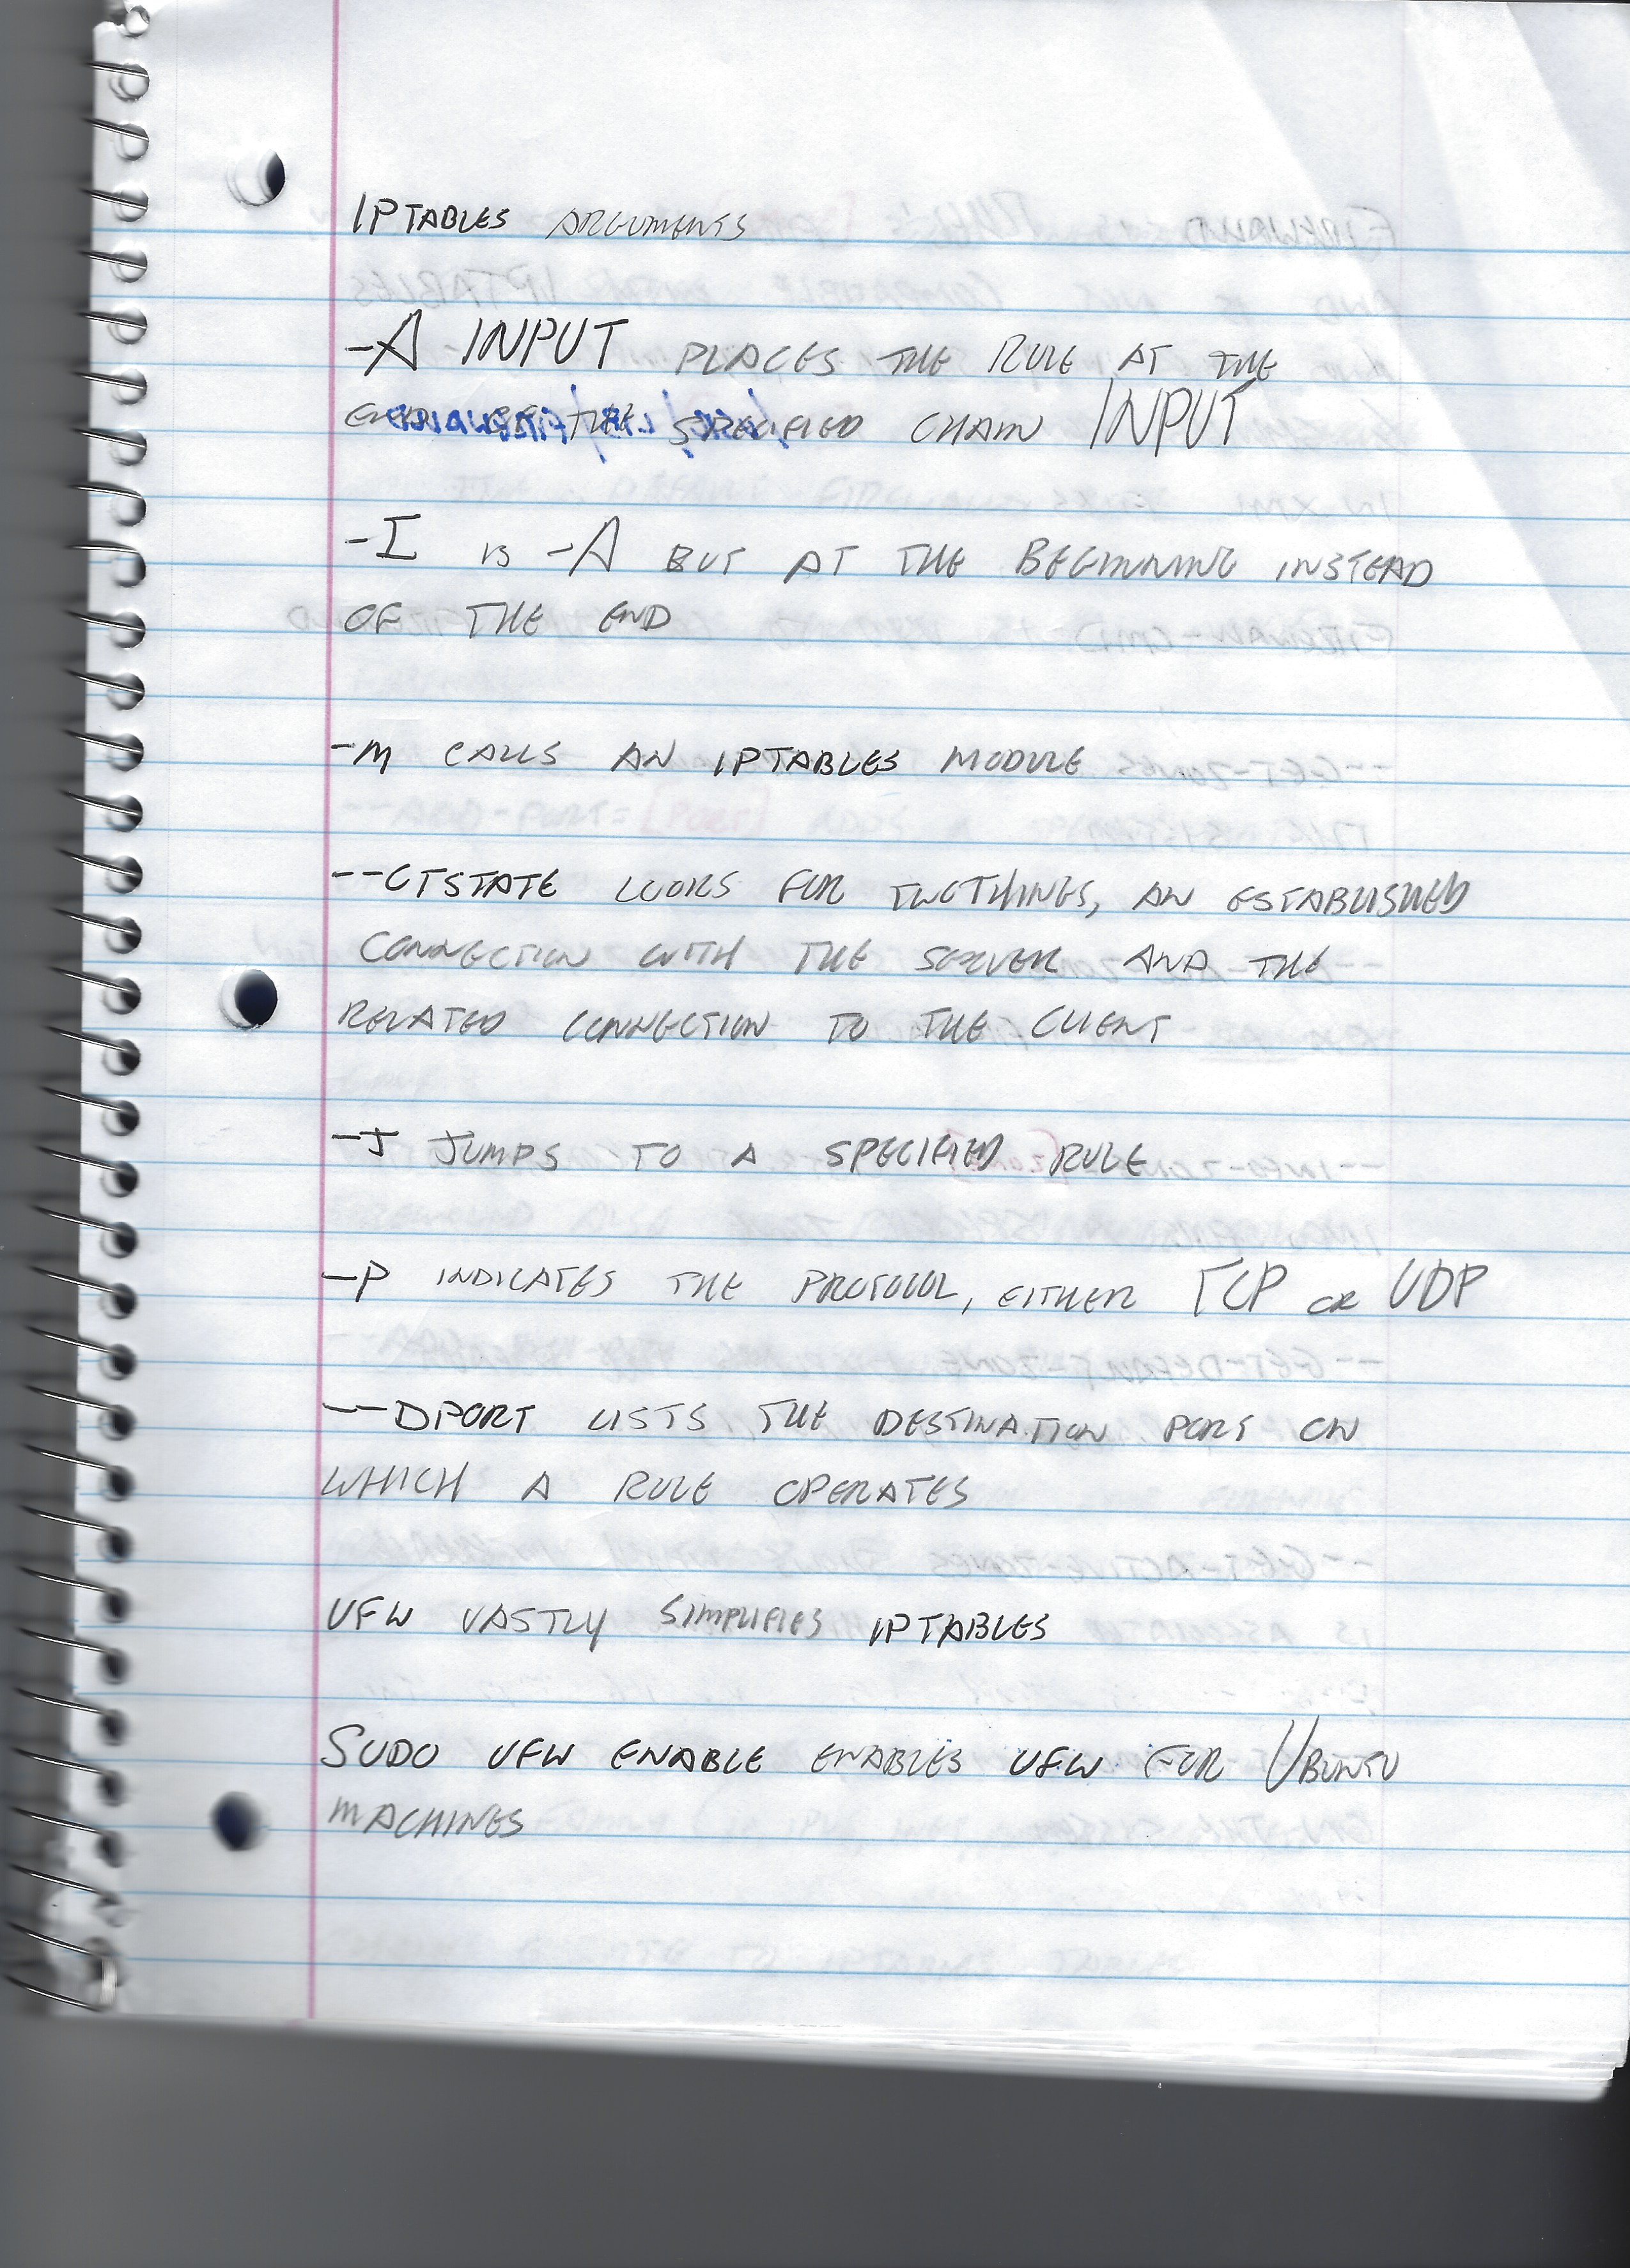 IPTABLES ARGUMENTS
-A INPUT PLACES THE RULE AT THE
END OF THE SPECIFIED CHAIN INPUT
-I IS -A BUT AT THE BEGINNING INSTEAD
OF THE END
-M CALLS AN IPTABLES MODULE
--CTSTATE LOOKS FOR TWO THINGS, AN ESTABLISHED
CONNECTION WITH THE SERVER AND THE
RELATED CONNECTION TO THE CLIENT
-J JUMPS TO A SPECIFIED RULE
-P INDICATES THE PROTOCOL, EITHER TCP OR UDP
--DPORT LISTS THE DESTINATION PORT ON
WHICH A RULE OPERATES
UFW VASTLY SIMPLIFIES IPTABLES
SUDO UFW ENABLE ENABLES UFW FOR UBUNTU
MACHINES